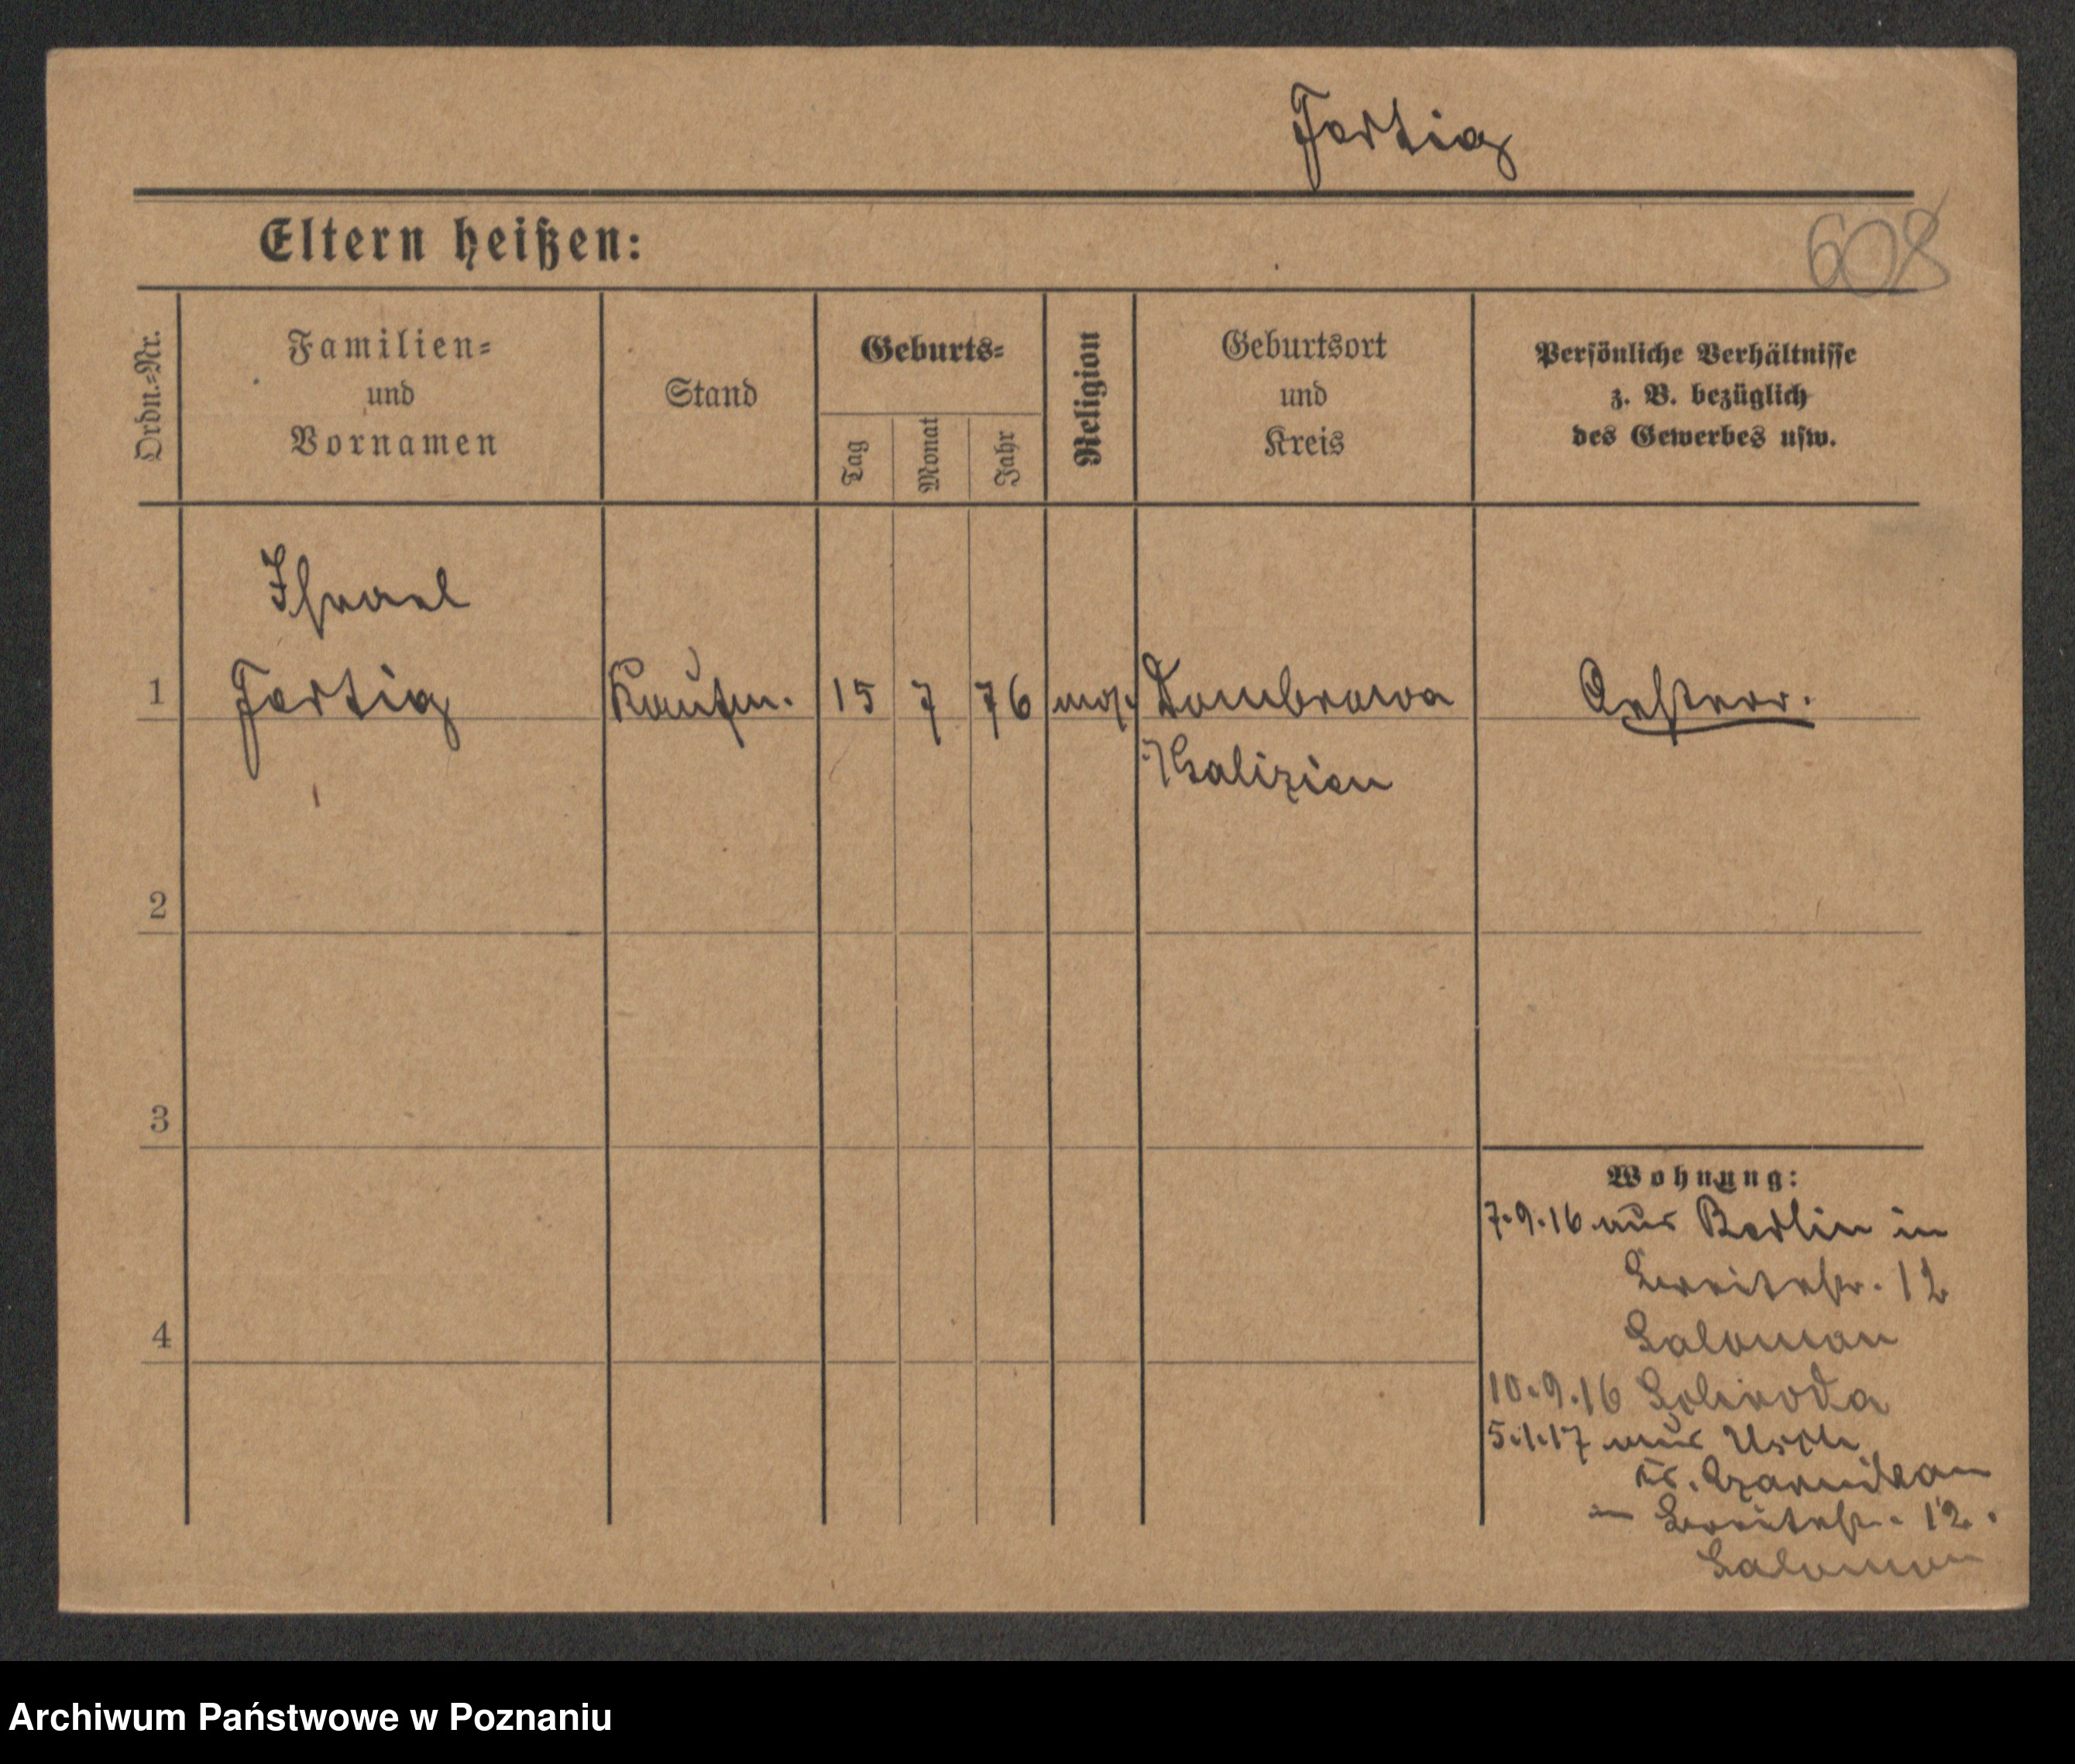 Fertig
Eltern heißen:
608
Ordn.-Nr.
Familien-
und
Vornamen
Stand
Geburts-
Tag
Monat
Jahr
Religion
Geburtsort
und
Kreis
Persönliche Verhältnisse
z. B. bezüglich
des Gewerbes usw.
Israel
1 Fertig Kaufm. 15 7 76 mos. Dombrowa Oesterr.
Galizien
2
3
4
Wohnung:
7.9.16 aus Berlin in
Breitestr. 12
Salomon
10.9.16
5.1.17 aus Usch
Kr. Czarnikau
in Breitestr. 12.
Salomon
Archiwum Państwowe w Poznaniu